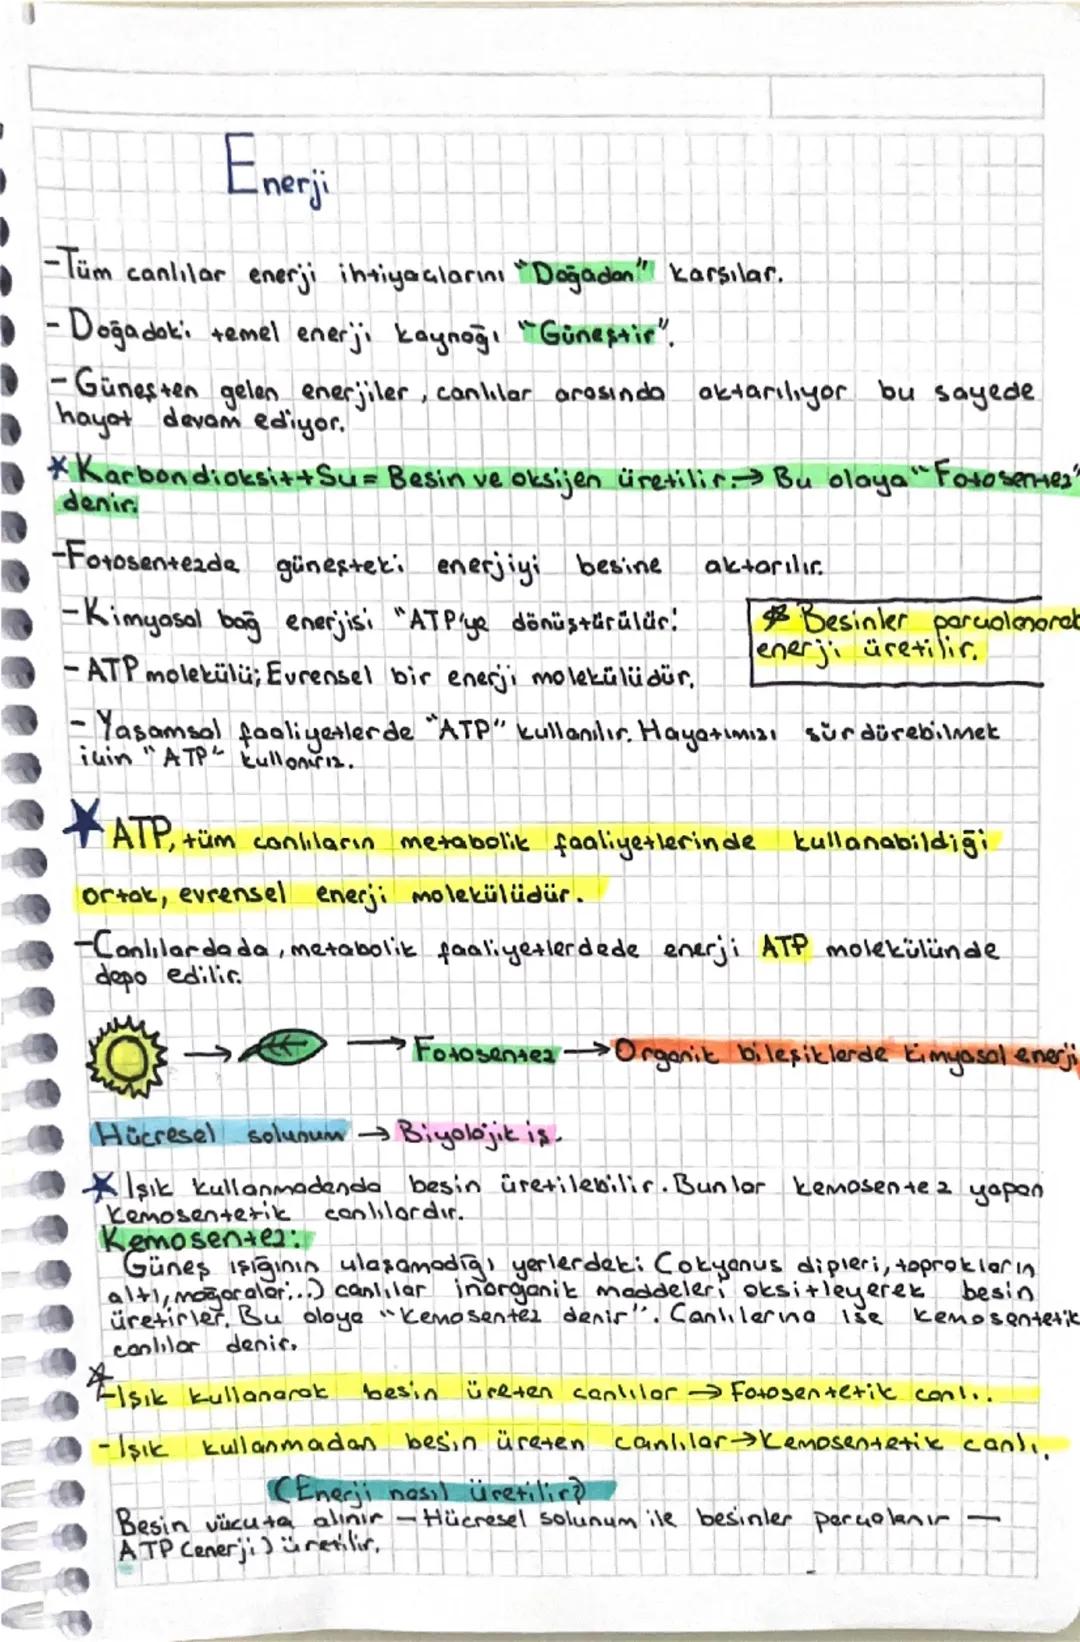 Enerji
-Tüm canlılar enerji ihtiyaçlarını "Doğadan" karşılar.
- Doğadaki temel enerji kaynağı "Güneştir".
- Güneşten gelen enerjiler, canlılar arasında aktarılıyor bu sayede
hayat devam ediyor.
* Karbondioksit + Su = Besin ve oksijen üretilir. → Bu olaya "Fotosentez"
denir.
-Fotosentezde güneşteki enerjiyi besine aktarılır.
-Kimyasal bağ enerjisi "ATP'ye dönüştürülür.'
* Besinler parçalanarak
enerji üretilir.
- ATP molekülü; Evrensel bir enerji molekülüdür.
- Yaşamsal faaliyetlerde "ATP" kullanılır. Hayatımızı sürdürebilmek
için "ATP" kullanırız.
★ ATP, tüm canlıların metabolik faaliyetlerinde kullanabildiği
ortak, evrensel enerji molekülüdür.
-Canlılardada, metabolik faaliyetlerdede enerji ATP molekülünde
depo edilir.
→ → Fotosentez → Organik bileşiklerde kimyasal enerji
Hücresel solunum → Biyolojik iş.
* Işık kullanmadanda besin üretilebilir. Bunlar kemosentez yapan
kemosentetik canlılardır.
Kemosentez:
Güneş ışığının ulaşamadığı yerlerdeki (okyanus dipleri, toprakların
altı, mağaralar...) canlılar inorganik maddeleri oksitleyerek besin
üretirler. Bu olaya "kemosentez denir". Canlılarına ise kemosentetik
canlılar denir.
* -Işık kullanarak besin üreten canlılar → Fotosentetik canlı.
- Işık kullanmadan besin üreten canlılar → Kemosentetik canlı.
(Enerji nasıl üretilir?)
Besin vücuta alınır — Hücresel solunum ile besinler parçalanır —
ATP (enerji) üretilir.